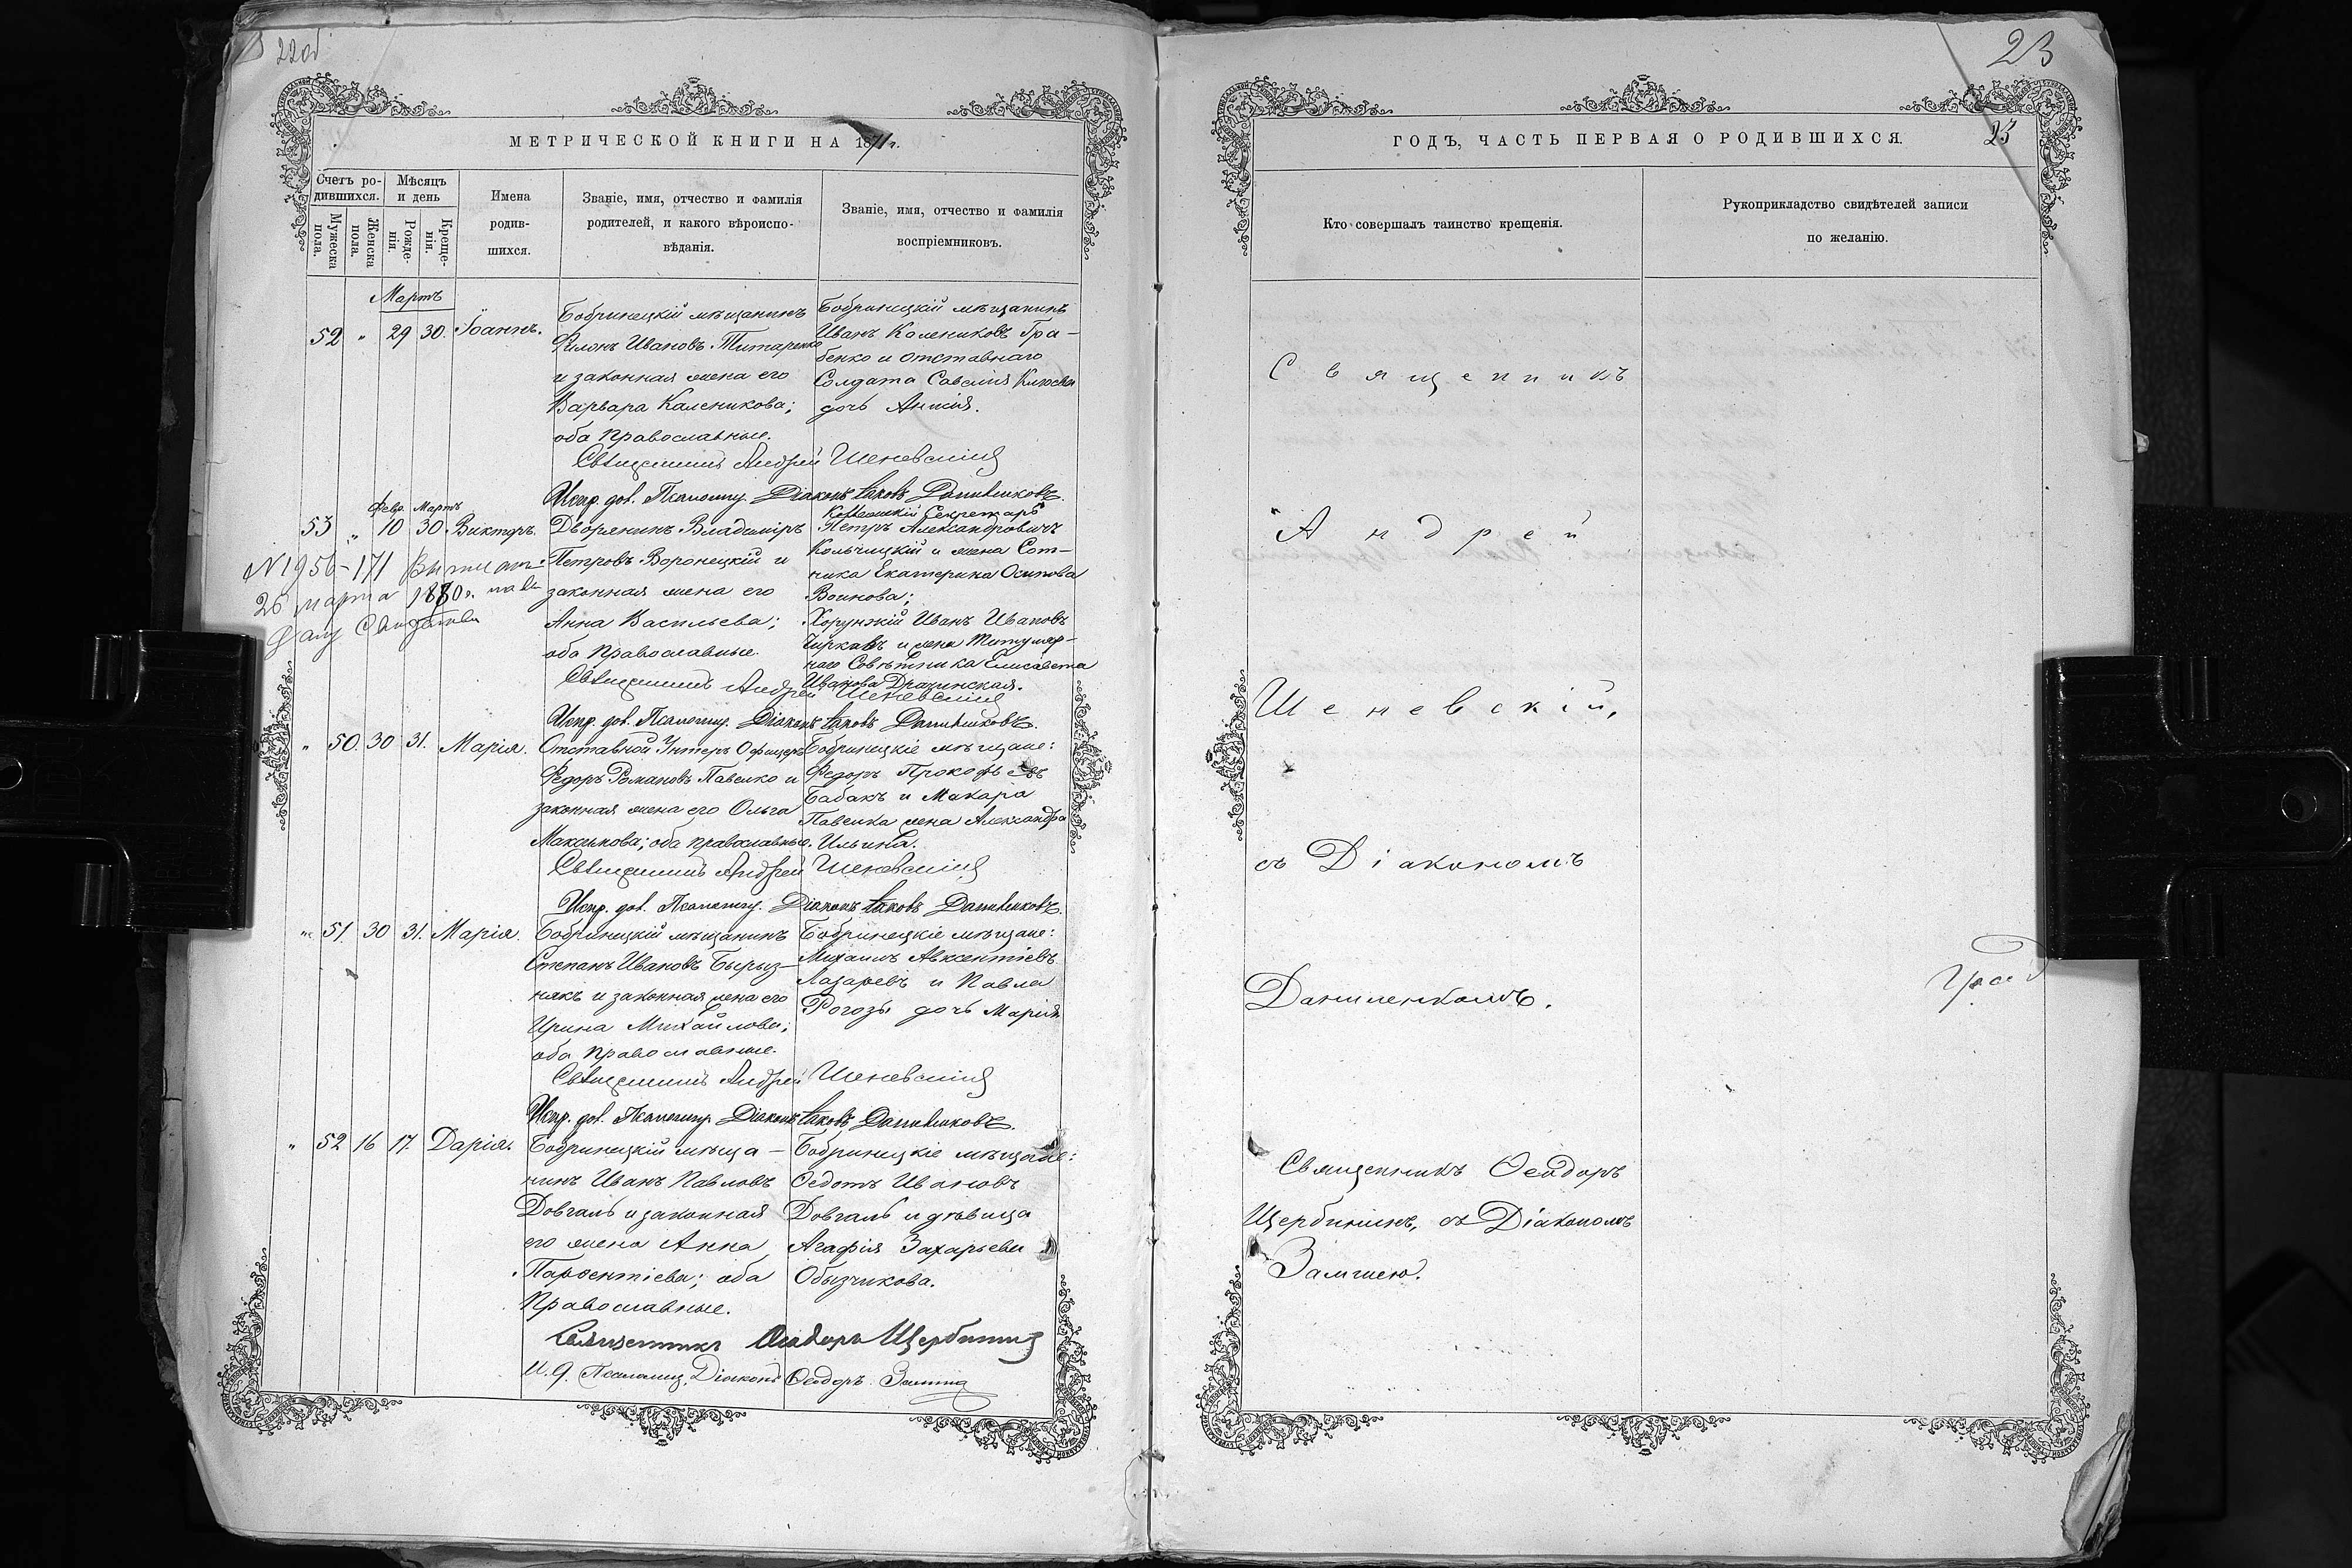 22об
МЕТРИЧЕСКОЙ КНИГИ НА 1871 г.
Счетъ ро-
дившихся.
Мужеска пола.
Женска пола.
Мѣсяцъ
и день
Рожде-
нія.
Креще-
нія.
Имена
родив-
шихся.
Званіе, имя, отчество и фамилія
родителей, и какого вѣроиспо-
вѣданія.
Званіе, имя, отчество и фамилія
воспріемниковъ.
Мартъ
52 " 29 30. Іоаннъ.
Бобринецкій мѣщанинъ
Филонъ Ивановъ Титаренко
и законная жена его
Варвара Каленикова;
оба православные.
Бобринецкій мѣщанинъ
Иванъ Калениковъ Гра-
бенко и отставнаго
Солдата Савелія Клюева
дочь Анисія.
Священникъ Андрей Шеневскій
Испр. дол. Псаломщ. Діаконъ Іаковъ Даниленковъ.
Февр. Мартъ
53 " 10 30 Викторъ.
Дворянинъ Владиміръ
Петровъ Воронецкій и
законная жена его
Анна Васильева;
оба православные.
Секретарь
Петръ Александровичъ
Кольчицкій и жена Сот-
ника Екатерина Осипова
Воинова;
Хорунжій Иванъ Ивановъ
Чирковъ и жена Титуляр-
наго Совѣтника Елисавета
Иванова Дразинская.
N 1956-171
26 марта 1880 г.
Священникъ Андрей Шеневскій
Испр. дол. Псаломщ. Діаконъ Іаковъ Даниленковъ.
" 50 30 31. Марія.
Отставной Унтеръ Офицеръ
Ѳедоръ Романовъ Павелко и
законная жена его Ольга
Максимова; оба православные.
Бобринецкіе мѣщане:
Ѳедоръ Прокофьевъ
Бабакъ и Макара
Павелка жена Александра
Ильина.
Священникъ Андрей Шеневскій
Испр. дол. Псаломщ. Діаконъ Іаковъ Даниленковъ.
" 51. 30 31. Марія.
Бобринецкій мѣщанинъ
Степанъ Ивановъ Бырыз-
някъ и законная жена его
Ирина Михайлова;
оба православные.
Бобринецкіе мѣщане:
Михаилъ Авксентіевъ
Лазаревъ и Павла
Рогозы дочь Марія
Священникъ Андрей Шеневскій
Испр. дол. Псаломщ. Діаконъ Іаковъ Даниленковъ.
" 52 16 17. Дарія.
Бобринецкій мѣща-
нинъ Иванъ Павловъ
Довгаль и законная
его жена Анна
Парѳентіева; оба
Православные.
Бобринецкіе мѣщане:
Ѳедотъ Ивановъ
Довгаль и дѣвица
Агафія Захарьева
Обызчикова.
Священникъ Ѳеодоръ Щербининъ
И. д. Псаломщ. Діаконъ Ѳеодоръ Замша
23
ГОДЪ, ЧАСТЬ ПЕРВАЯ О РОДИВШИХСЯ.
23
Кто совершалъ таинство крещенія.
Рукоприкладство свидѣтелей записи
по желанію.
Священникъ
Андрей
Шеневскій,
съ Діакономъ
Даниленкомъ.
Священникъ Ѳеодоръ
Щербининъ, съ Діакономъ
Замшею.